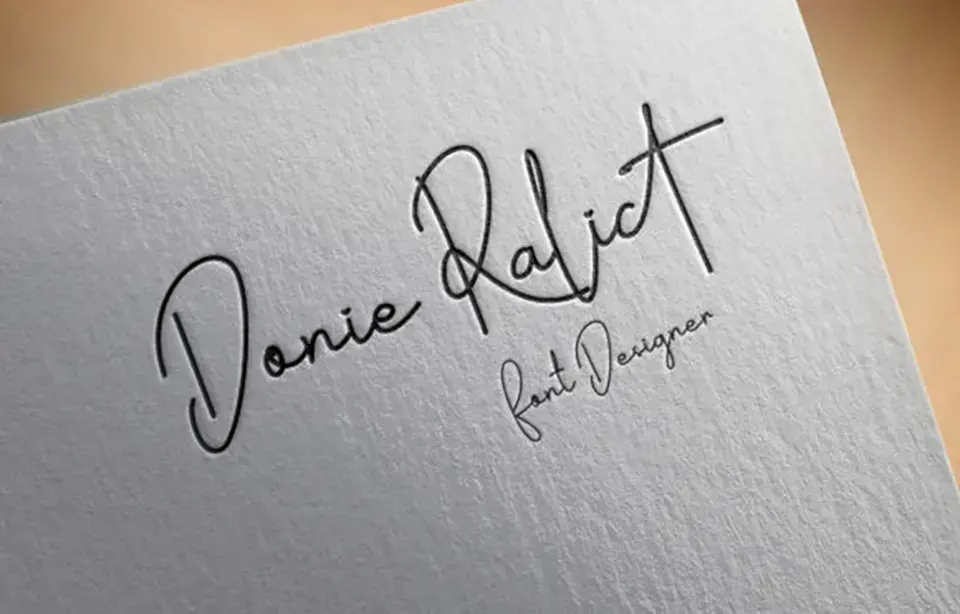 Donie Ralict
font Designer